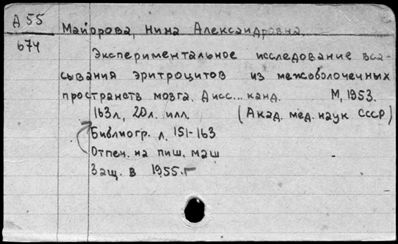 Д 55
674
Майорова, Нина Александровна.
Экспериментальное исследование вса-
сывания эритроцитов из межоболочечных
пространств мозга. Дисс... канд. М, 1953.
163 л, 20 л. илл. (Акад. мед. наук СССР)
Библиогр. л. 151-163
Отпеч. на пиш. маш
Защ. в 1955 г